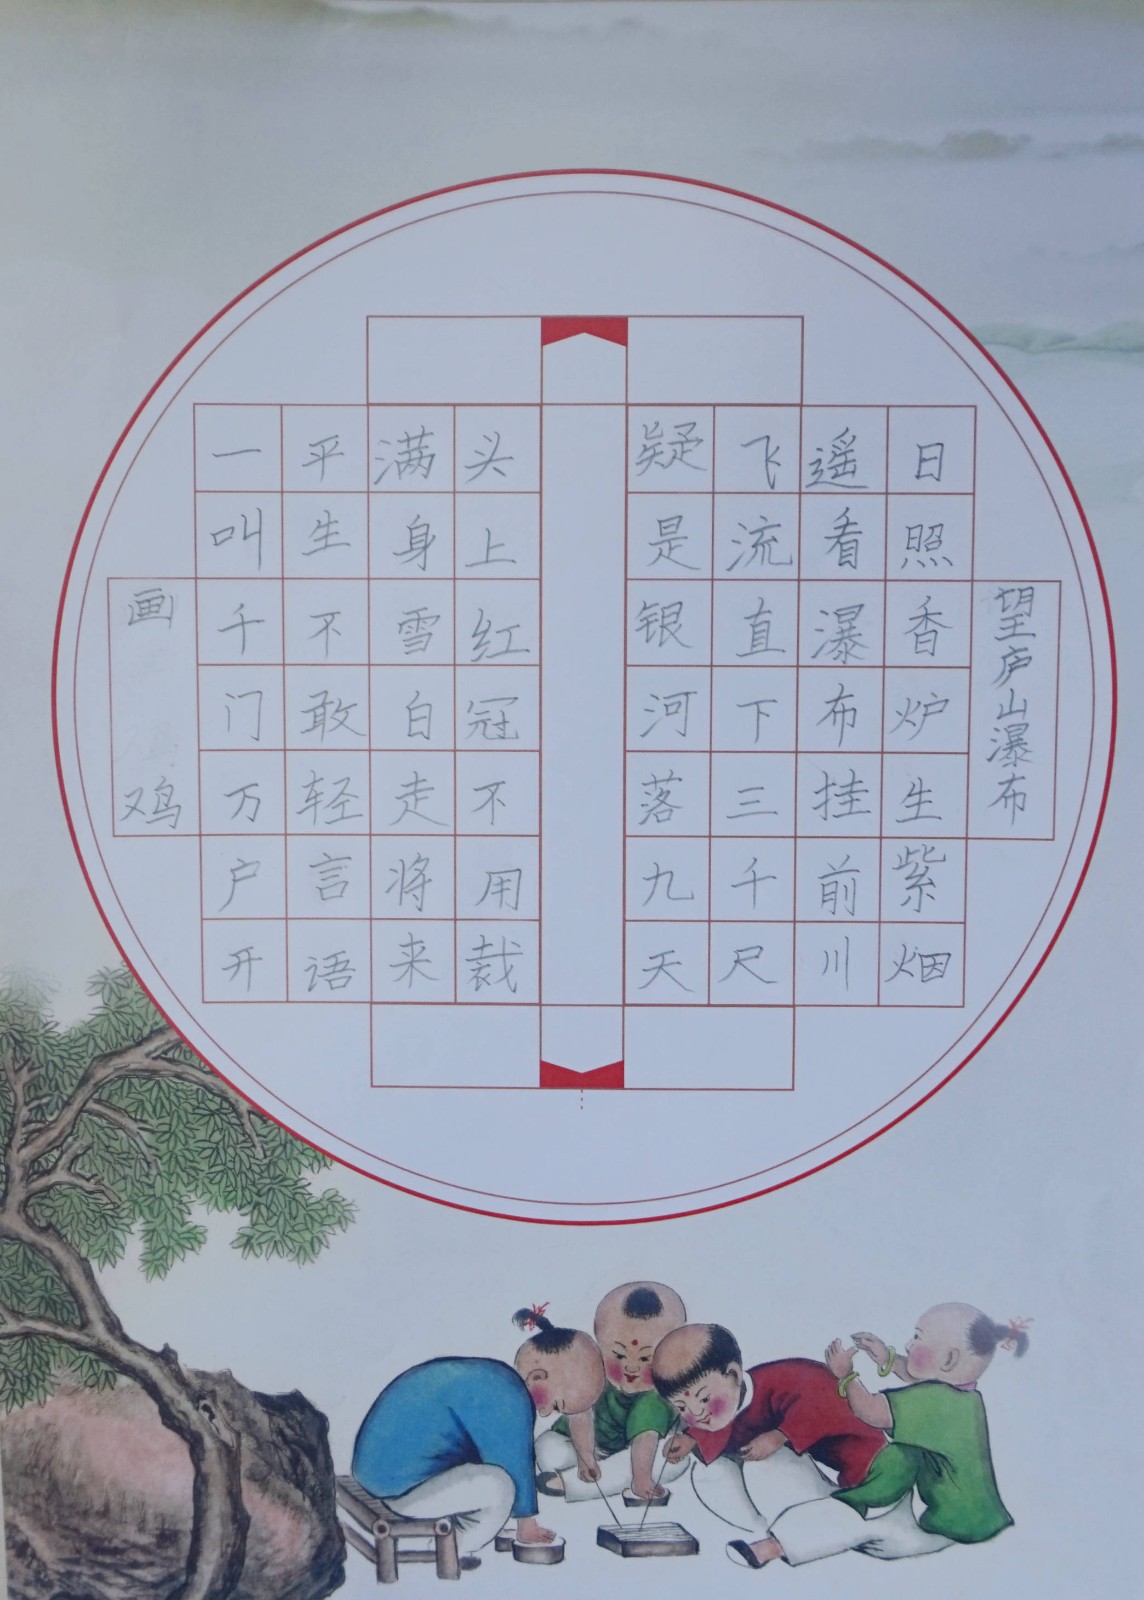 望庐山瀑布
日照香炉生紫烟
遥看瀑布挂前川
飞流直下三千尺
疑是银河落九天
头上红冠不用裁
满身雪白走将来
平生不敢轻言语
一叫千门万户开
画鸡